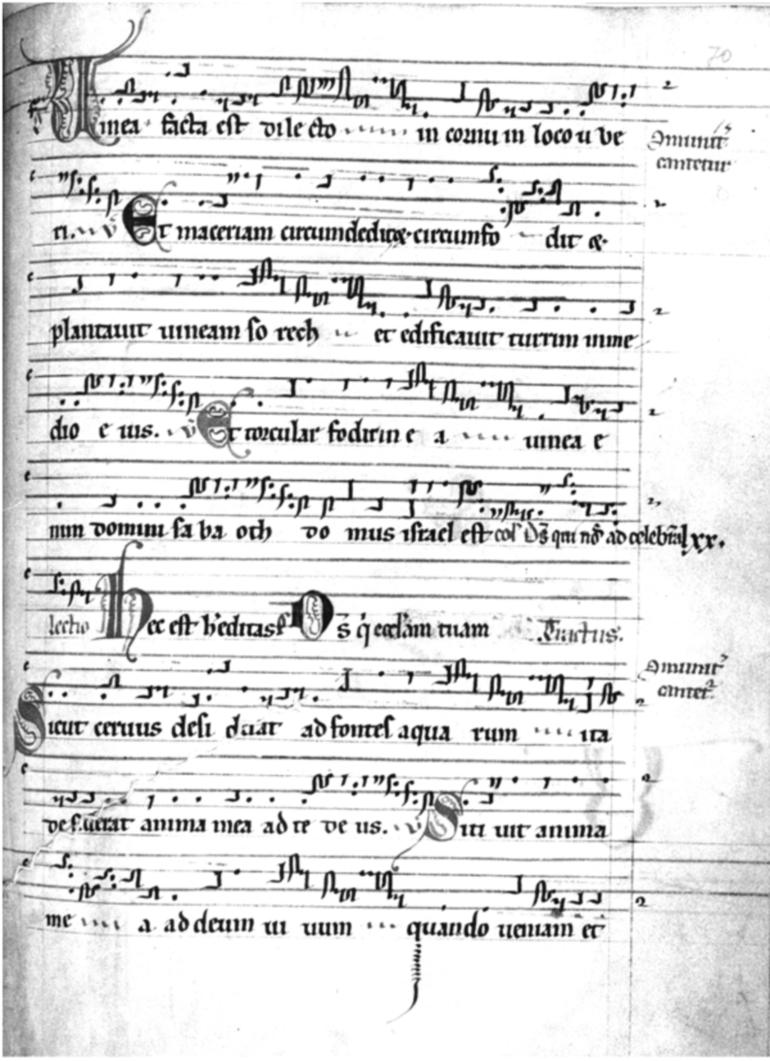 70
Vinea facta est dilecto in cornu in loco u ve
ri. v̄ Et maceriam circumdedit & circumfo dit &
plantauit uineam so rech et edificauit turrim in me
dio e ius. v̄ Et torcular fodit in e a uinea e
nim domini sa ba oth do mus israel est col' Ds̄ qui nob̄ ad celebr̄a lxx.
lectio Hec est h'editas Ds̄ q̇ eccl'am tuam Tractus.
cantetur
Sicut ceruus desi derat ad fontes aqua rum ita
desiderat anima mea ad te de us. v̄ Siti uit anima
me a ad deum ui uum quando ueniam et